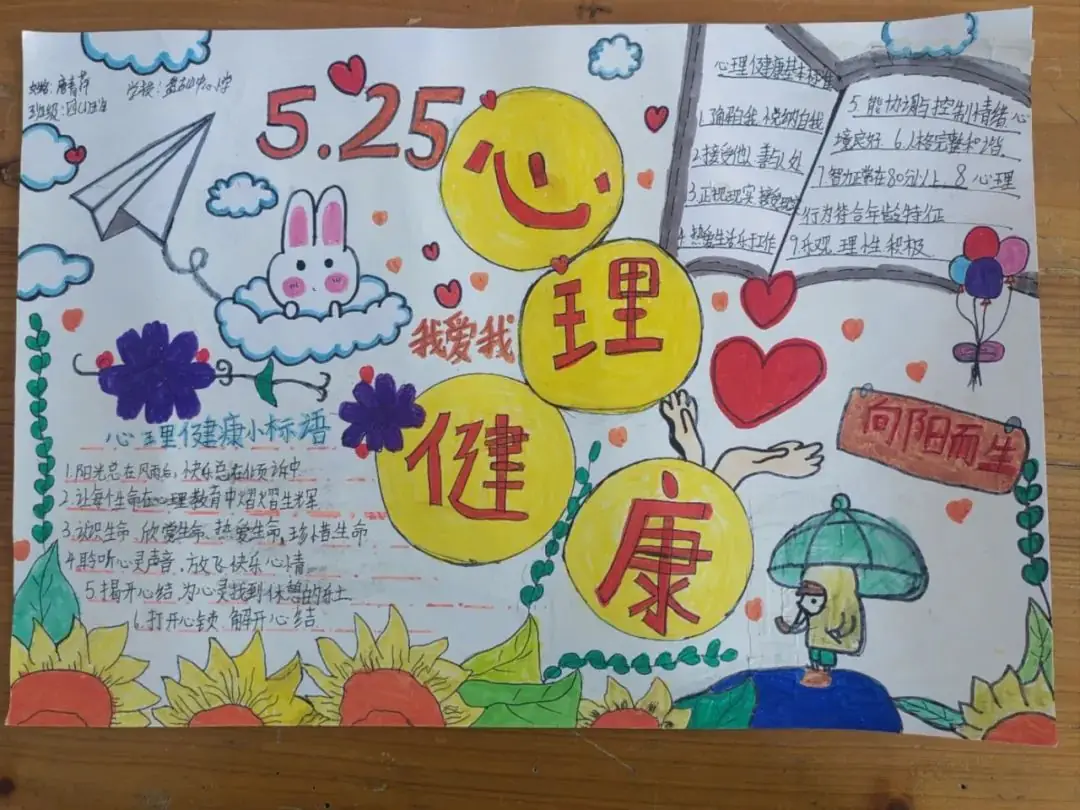 姓名:唐青萍 学校:中心小学
班级:四(1)班
5.25
心理健康
我爱我
心理健康基本标准
1.确自我 悦纳自我
2.接受他人 善与人处
3.正视现实 接受现实
4.热爱生活 乐于工作
5.能协调与控制情绪心
境良好 6.人格完整和谐.
7智力正常在80分以上. 8心理
行为符合年龄特征
9.乐观 理性 积极
向阳而生
心理健康小标语
1.阳光总在风雨后,快乐总在倾诉中
2.让每个生命在心理教育中熠熠生辉
3.认识生命,欣赏生命,热爱生命,珍惜生命
4.聆听心灵声音,放飞快乐心情
5.揭开心结 为心灵找到休憩的净土
6.打开心锁 解开心结